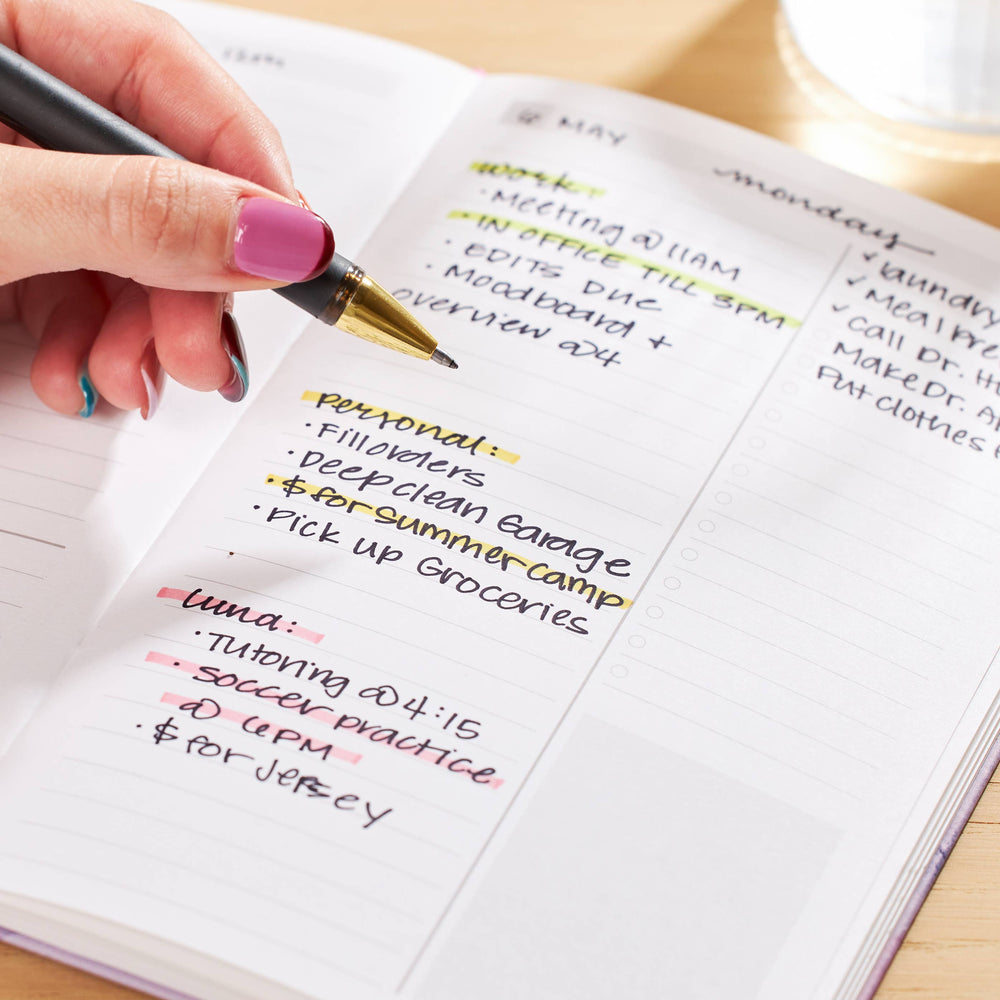 MAY
monday
work:
· Meeting @ 11AM
· IN OFFICE TILL 3PM
· EDITS DUE
· Moodboard +
overview @4
personal:
· Fill orders
· Deep clean Garage
· $ for summer camp
· Pick up Groceries
Luna:
· Tutoring @ 4:15
· soccer practice
@ 6PM
· $ for Jersey
✓ laundry
✓ Meal
✓ Call Dr.
Make Dr.
Put clothes